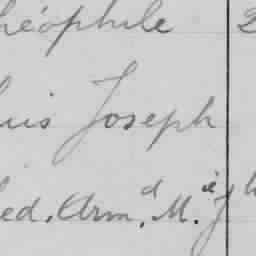 héophile 2
uis Joseph
ed. Arm.d M.ie Jh